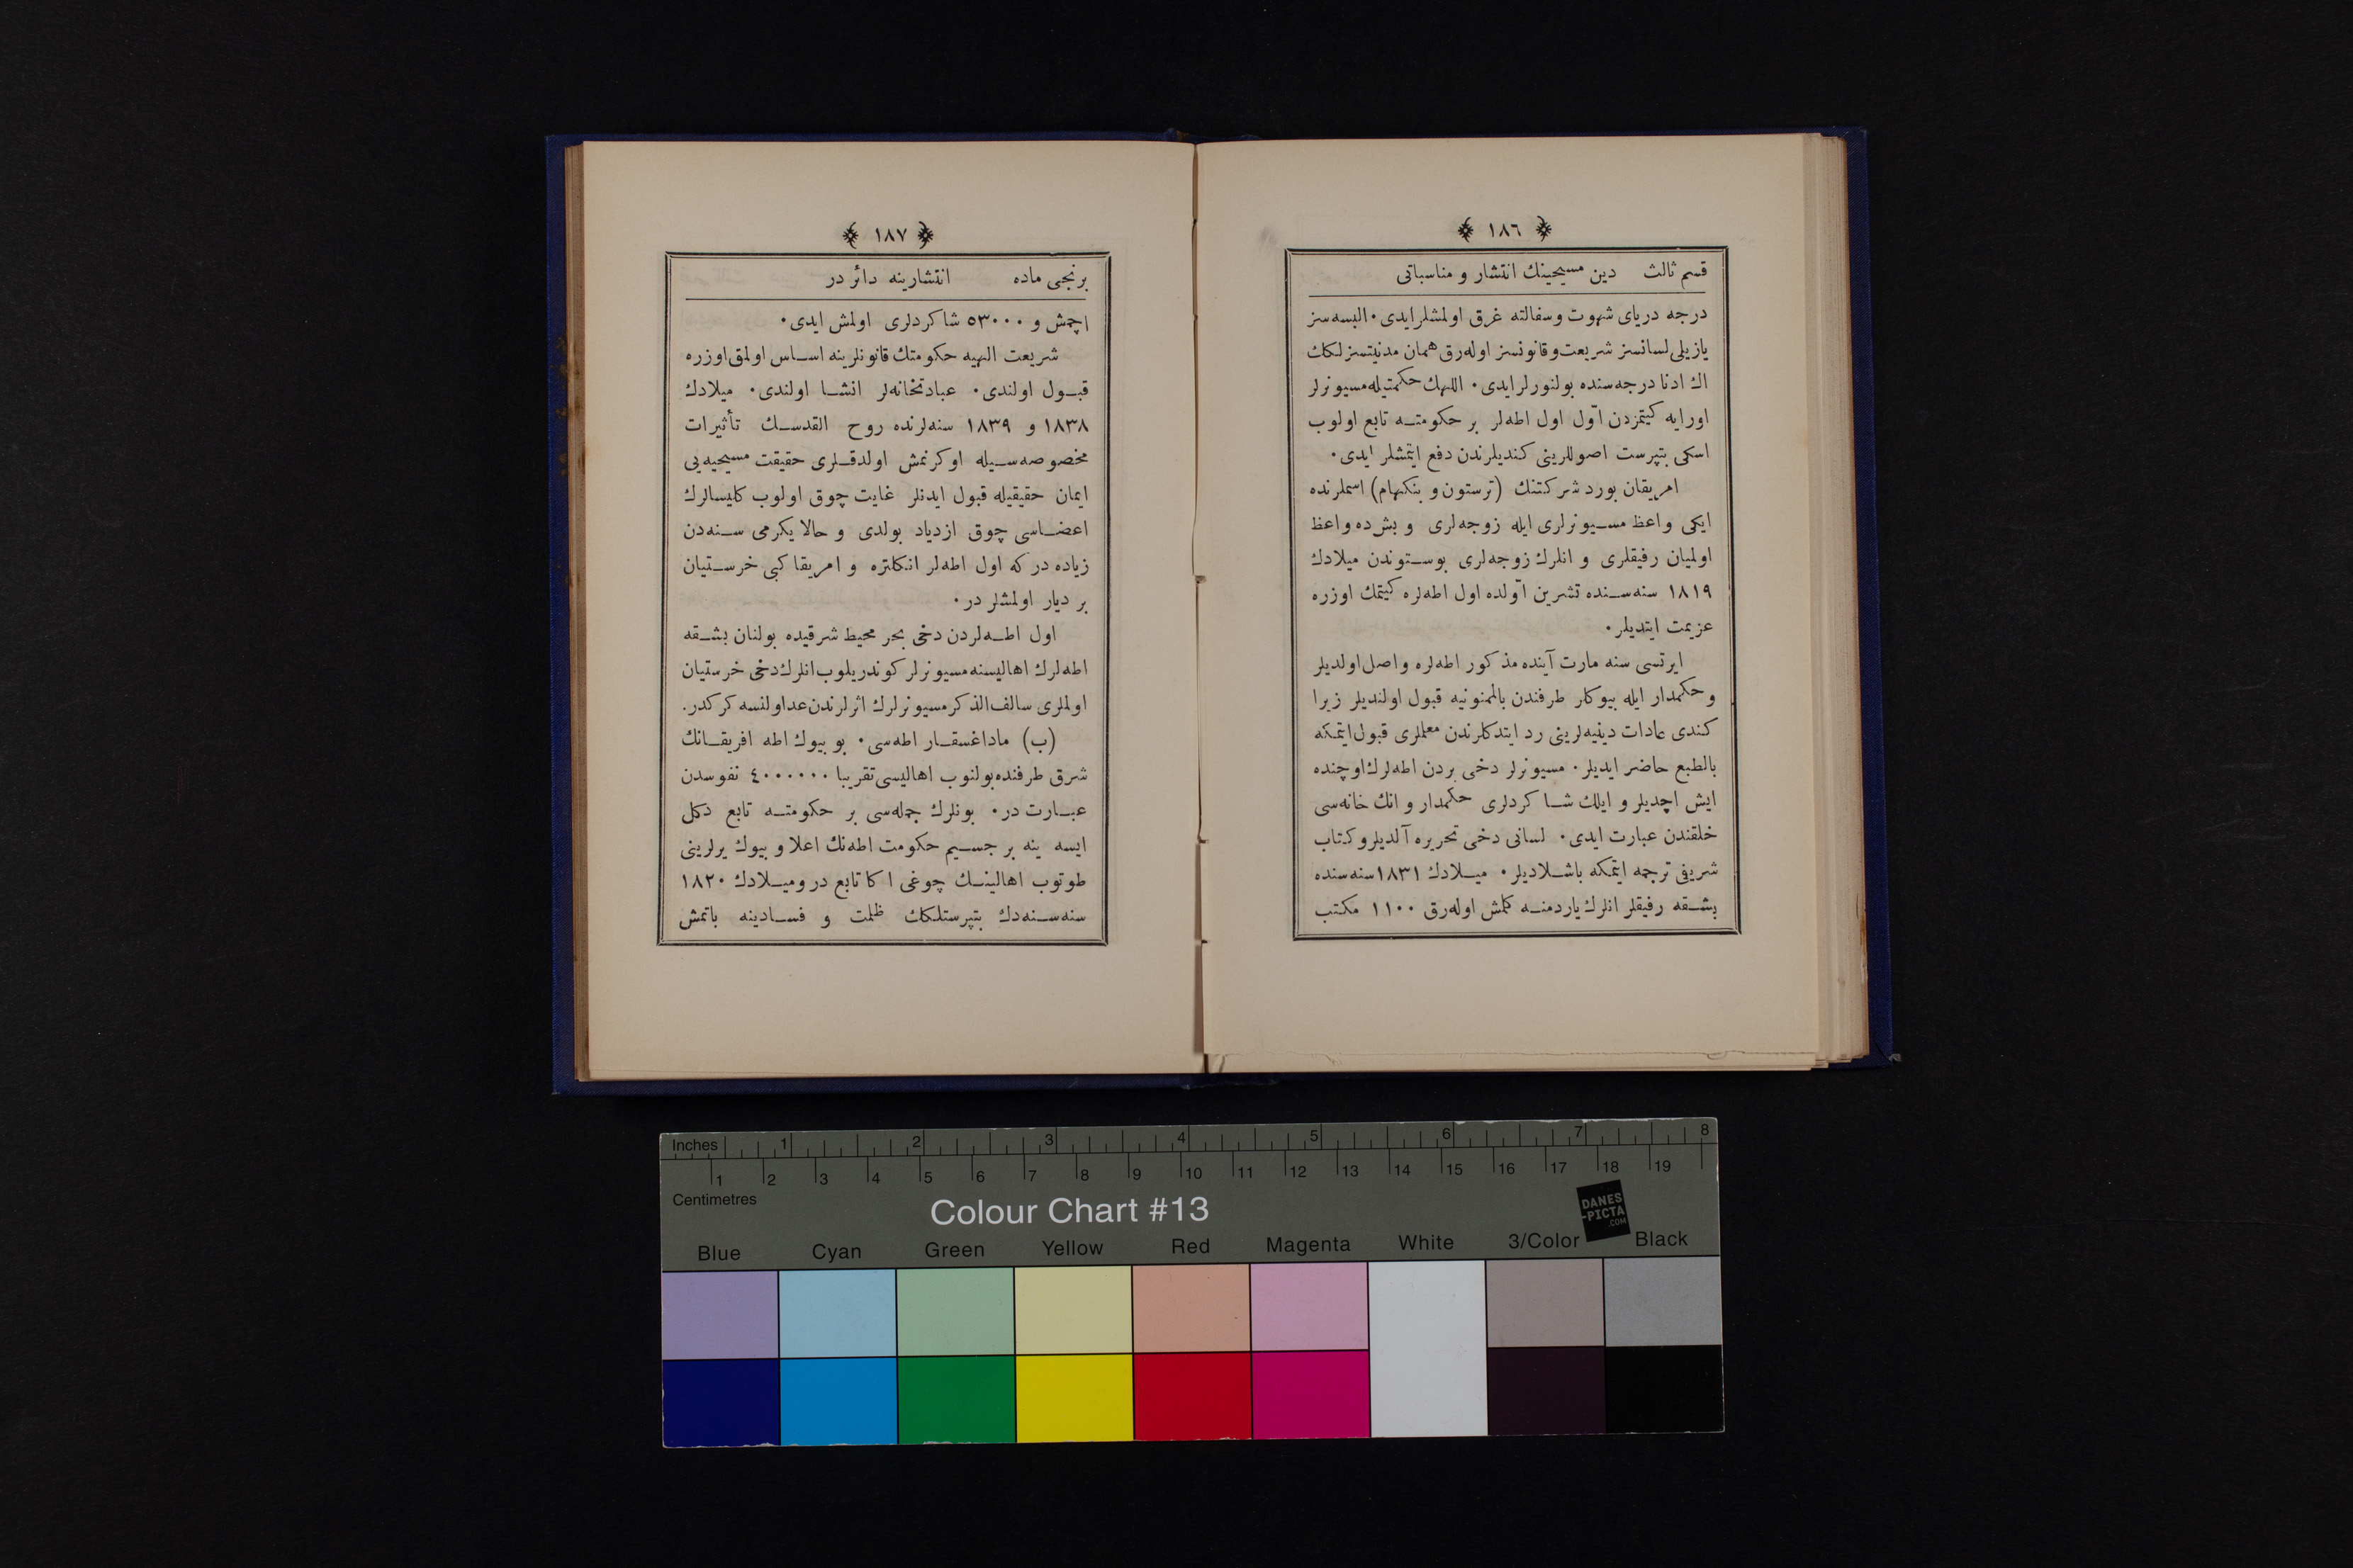 ١٨٦
قسم ثالث دين مسيحينك انتشار و مناسباتى
درجه درياى شهوت وسفالته غرق اولمشلرايدى٠ البسه‌سز
يازيلى‌لسانسز شريعت‌وقانونسز اوله‌رق همان مدنيتسزلكك
اك ادنا درجه‌سنده بولنورلرايدى٠ اللهك حكمتيله مسيونرلر
اورايه كيتمزدن اوّل اول اطه‌لر بر حكومتــه تابع اولوب
اسكى بتپرست اصوللرينى كنديلرندن دفع ايتمشلر ايدى٠
امريقان بورد شركتنك (ترستون و بنكهام) اسملرنده
ايكى واعظ مســيونرلرى ايله زوجه‌لرى و بش‌ده واعظ
اولميان رفيقلرى و انلرك زوجه‌لرى بوســتوندن ميلادك
١٨١٩ سنه‌ســنده تشرين اوّلده اول اطه‌لره كيتمك اوزره
عزيمت ايتديلر٠
ايرتسى سنه مارت آينده مذكور اطه‌لره واصل‌اولديلر
وحكمدار ايله بيوكلر طرفندن بالممنونيه قبول اولنديلر زيرا
كندى عادات دينيه‌لرينى رد ايتدكلرندن معلملرى قبول‌ايتمكه
بالطبع حاضر ايديلر٠ مسيونرلر دخى بردن اطه‌لرك‌اوچنده
ايش اچديلر و ايلك شــاكردلرى حكمدار و انك خانه‌سى
خلقندن عبارت ايدى٠ لسانى دخى تحريره آلديلروكتاب
شريفى ترجمه ايتمكه باشــلاديلر٠ ميــلادك ١٨٣١سنه‌سنده
بشــقه رفيقلر انلرك ياردمنــه كلمش اوله‌رق ١١٠٠ مكتب
١٨٧
برنجى ماده انتشارينه دائر در
اچمش و ٥٣٠٠٠ شاكردلرى اولمش ايدى٠
شريعت الهيه حكومتك قانونلرينه اســاس اولمق‌اوزره
قبــول اولندى٠ عبادتخانه‌لر انشــا اولندى٠ ميلادك
١٨٣٨ و ١٨٣٩ سنه‌لرنده روح القدســك تأثيرات
مخصوصه‌ســيله اوكرنمش اولدقــلرى حقيقت مسيحيه‌يى
ايمان حقيقيله قبول ايدنلر غايت چوق اولوب كليسالرك
اعضــاسى چوق ازدياد بولدى و حالا يكرمى ســنه‌دن
زياده در كه اول اطه‌لر انكلتره و امريقا كبى خرســتيان
بر ديار اولمشلر در٠
اول اطــه‌لردن دخى بحر محيط شرقيده بولنان بشــقه
اطه‌لرك اهاليسنه مسيونرلر كوندريلوب انلرك‌دخى خرستيان
اولملرى سالف‌الذكر مسيونرلرك اثرلرندن‌عداولنسه كركدر.
(ب) ماداغسقــار اطه‌سى٠ بو بيوك اطه افريقــانك
شرق طرفنده‌بولنوب اهاليسى‌تقريبا ٤٠٠٠٠٠٠ نفوسدن
عبــارت در٠ بونلرك جمله‌سى بر حكومتــه تابع دكل
ايسه ينه بر جســيم حكومت اطه‌نك اعلا و بيوك يرلرينى
طوتوب اهالينــك چوغى اكا تابع در وميــلادك ١٨٢٠
سنه‌ســنه‌دك بتپرستلكك ظلمت و فســادينه باتمش
Inches 1 2 3 4 5 6 7 8
1 2 3 4 5 6 7 8 9 10 11 12 13 14 15 16 17 18 19
Centimetres
Colour Chart #13
DANES
-PICTA
.COM
Blue Cyan Green Yellow Red Magenta White 3/Color Black